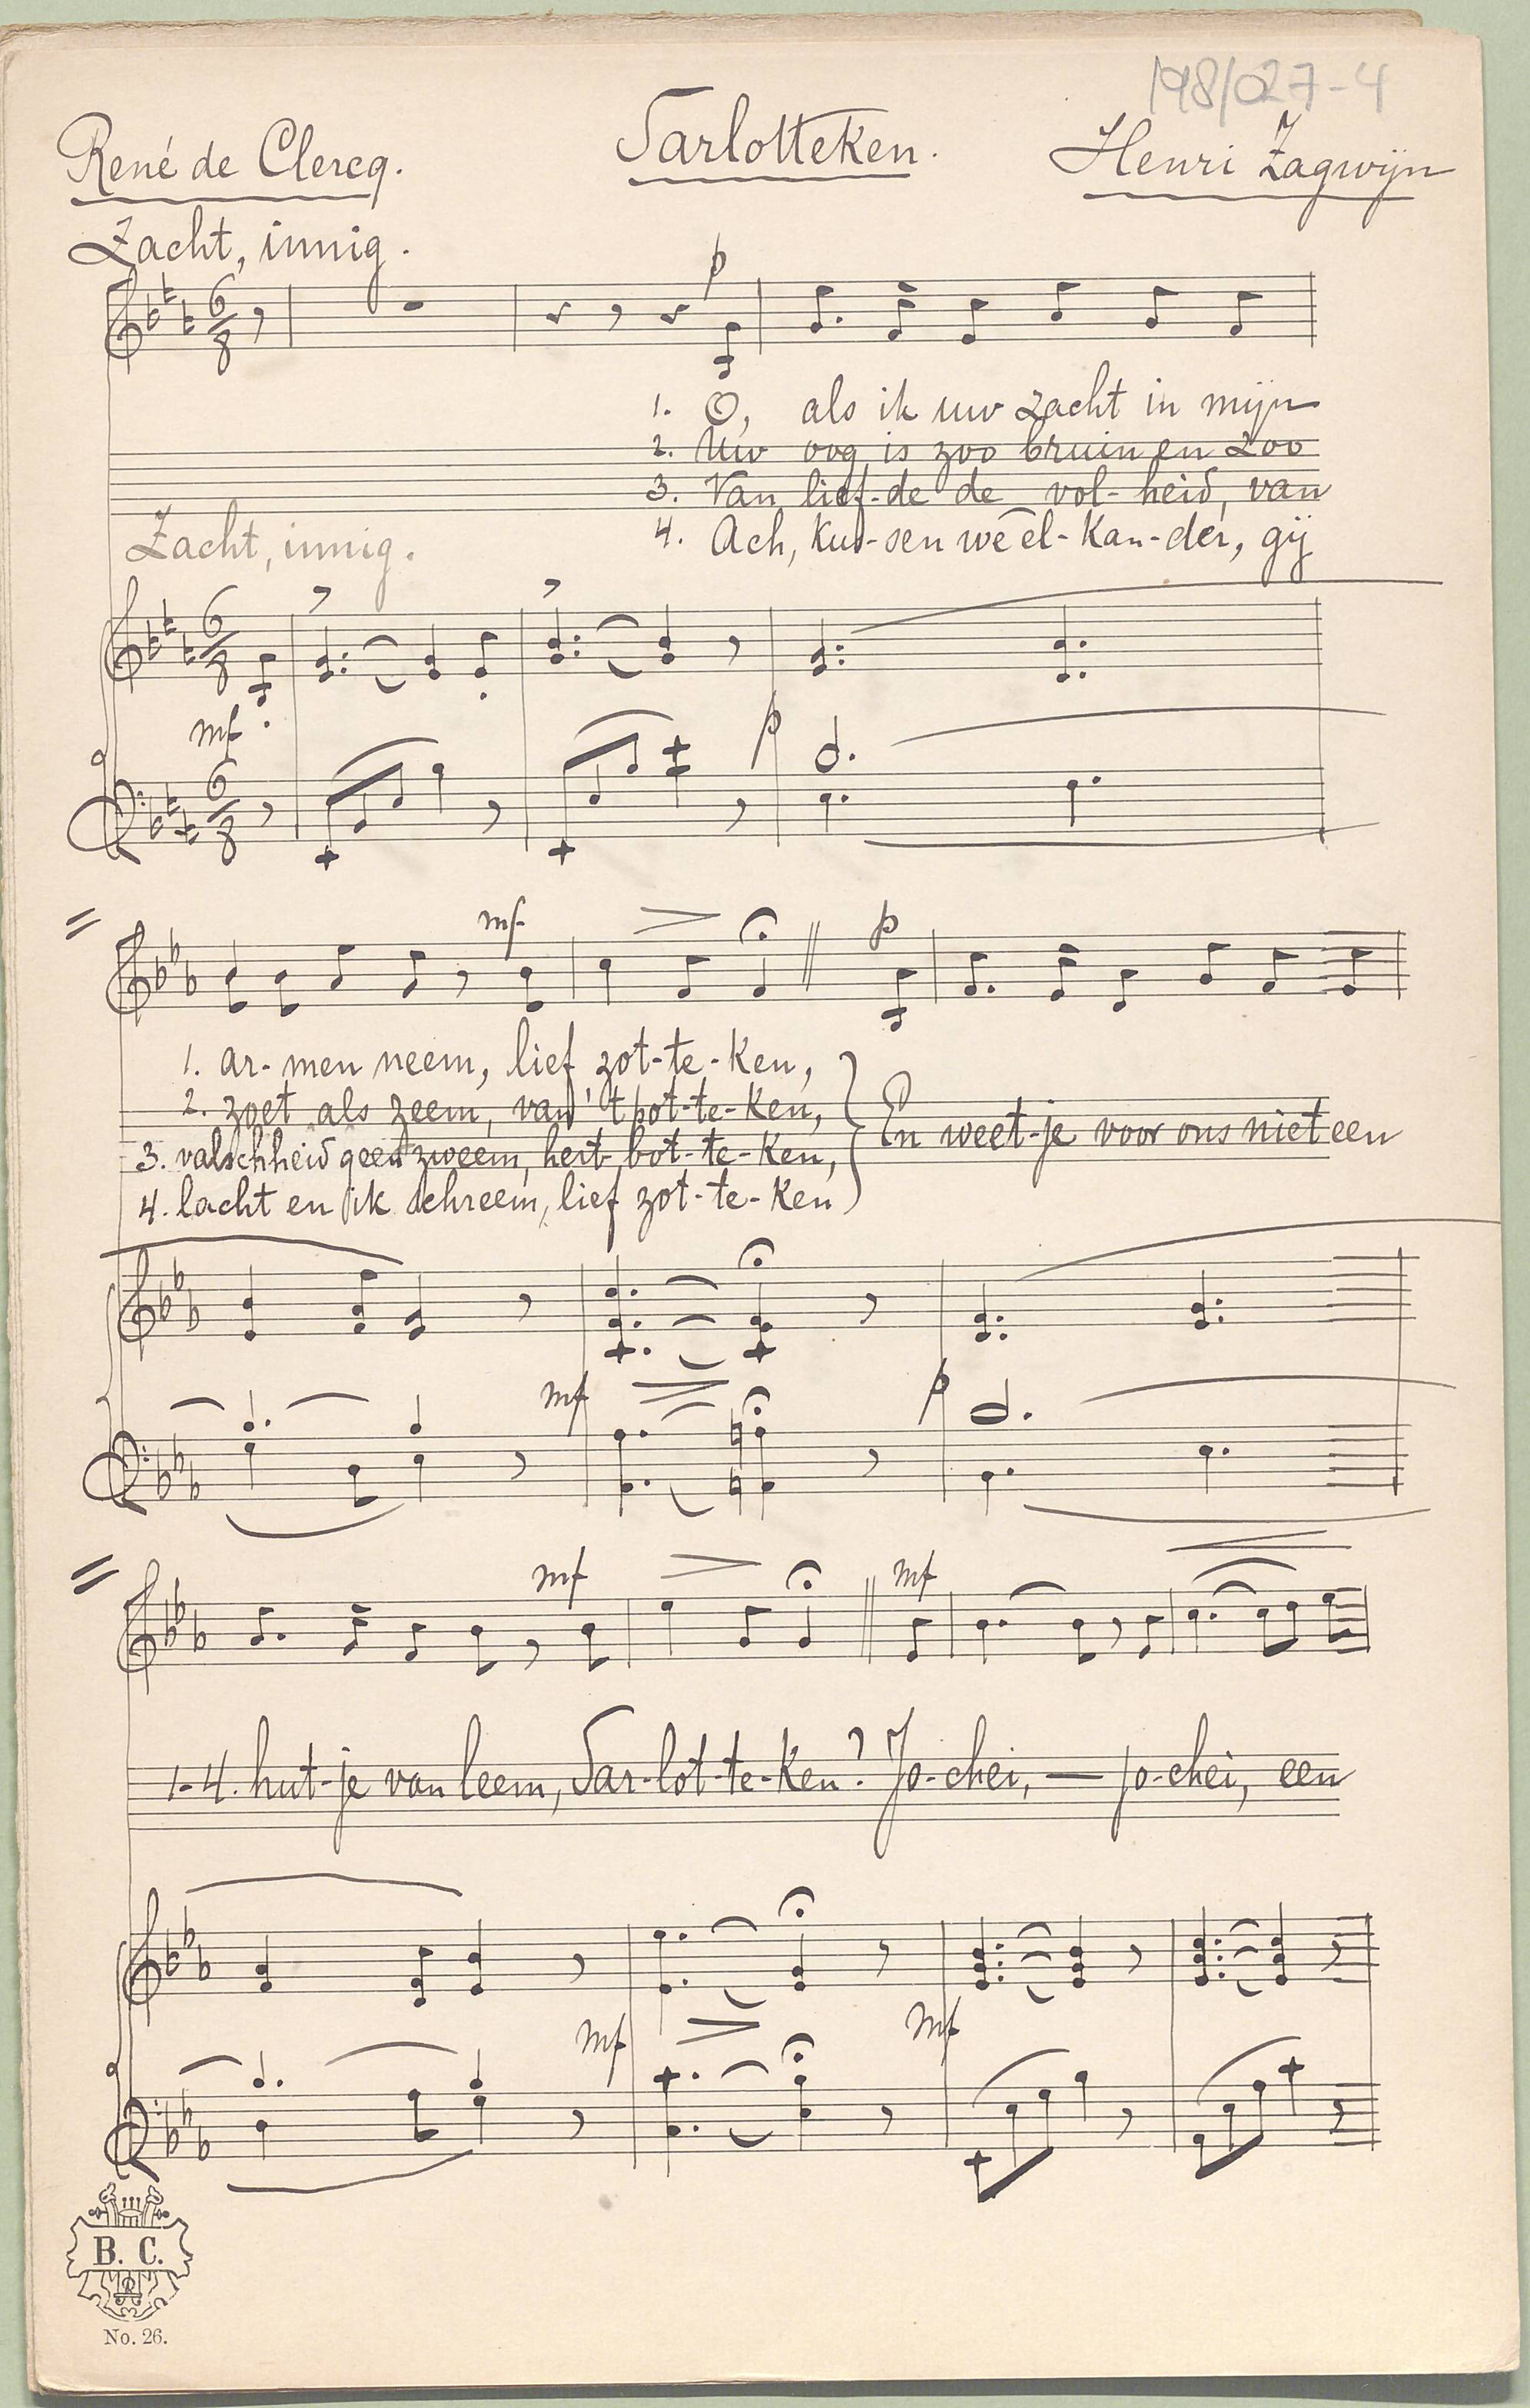 198/027-4
René de Clercq. Sarlotteken. Henri Zagwijn
Zacht, innig.
p
1. O, als ik uw zacht in mijn
2. Uw oog is zoo bruin en zoo
3. Van lief-de de vol-heid, van
4. Ach, kus-sen we el-kan-der, gij
Zacht, innig.
mf
p
mf p
1. ar-men neem, lief zot-te-ken,
2. zoet als zeem, van 't pot-te-ken,
3. valschheid geen zweem, hert-bot-te-ken,
4. lacht en ik schreem, lief zot-te-ken
En weet-je voor ons niet een
mf p
mf mf
1-4. hut-je van leem, Sar-lot-te-ken? Jo-chei, — jo-chei, een
mf mf
B. C.
No. 26.